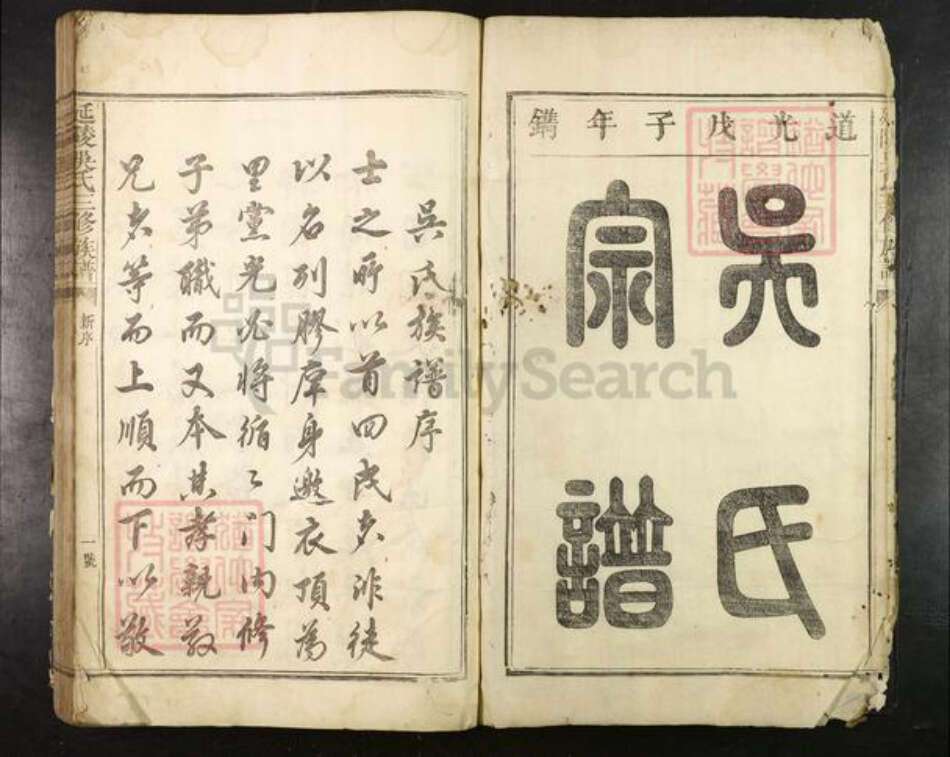 道光戊子年鐫
吳氏
宗譜
吳氏族譜序
士之所以首四民者非徒
以名列膠庠身邀衣頂為
里黨光必將循〻門内修
子弟職而又本其孝親敬
兄者等而上順而下以敬
延陵吳氏三修族譜
新序
一號
FamilySearch